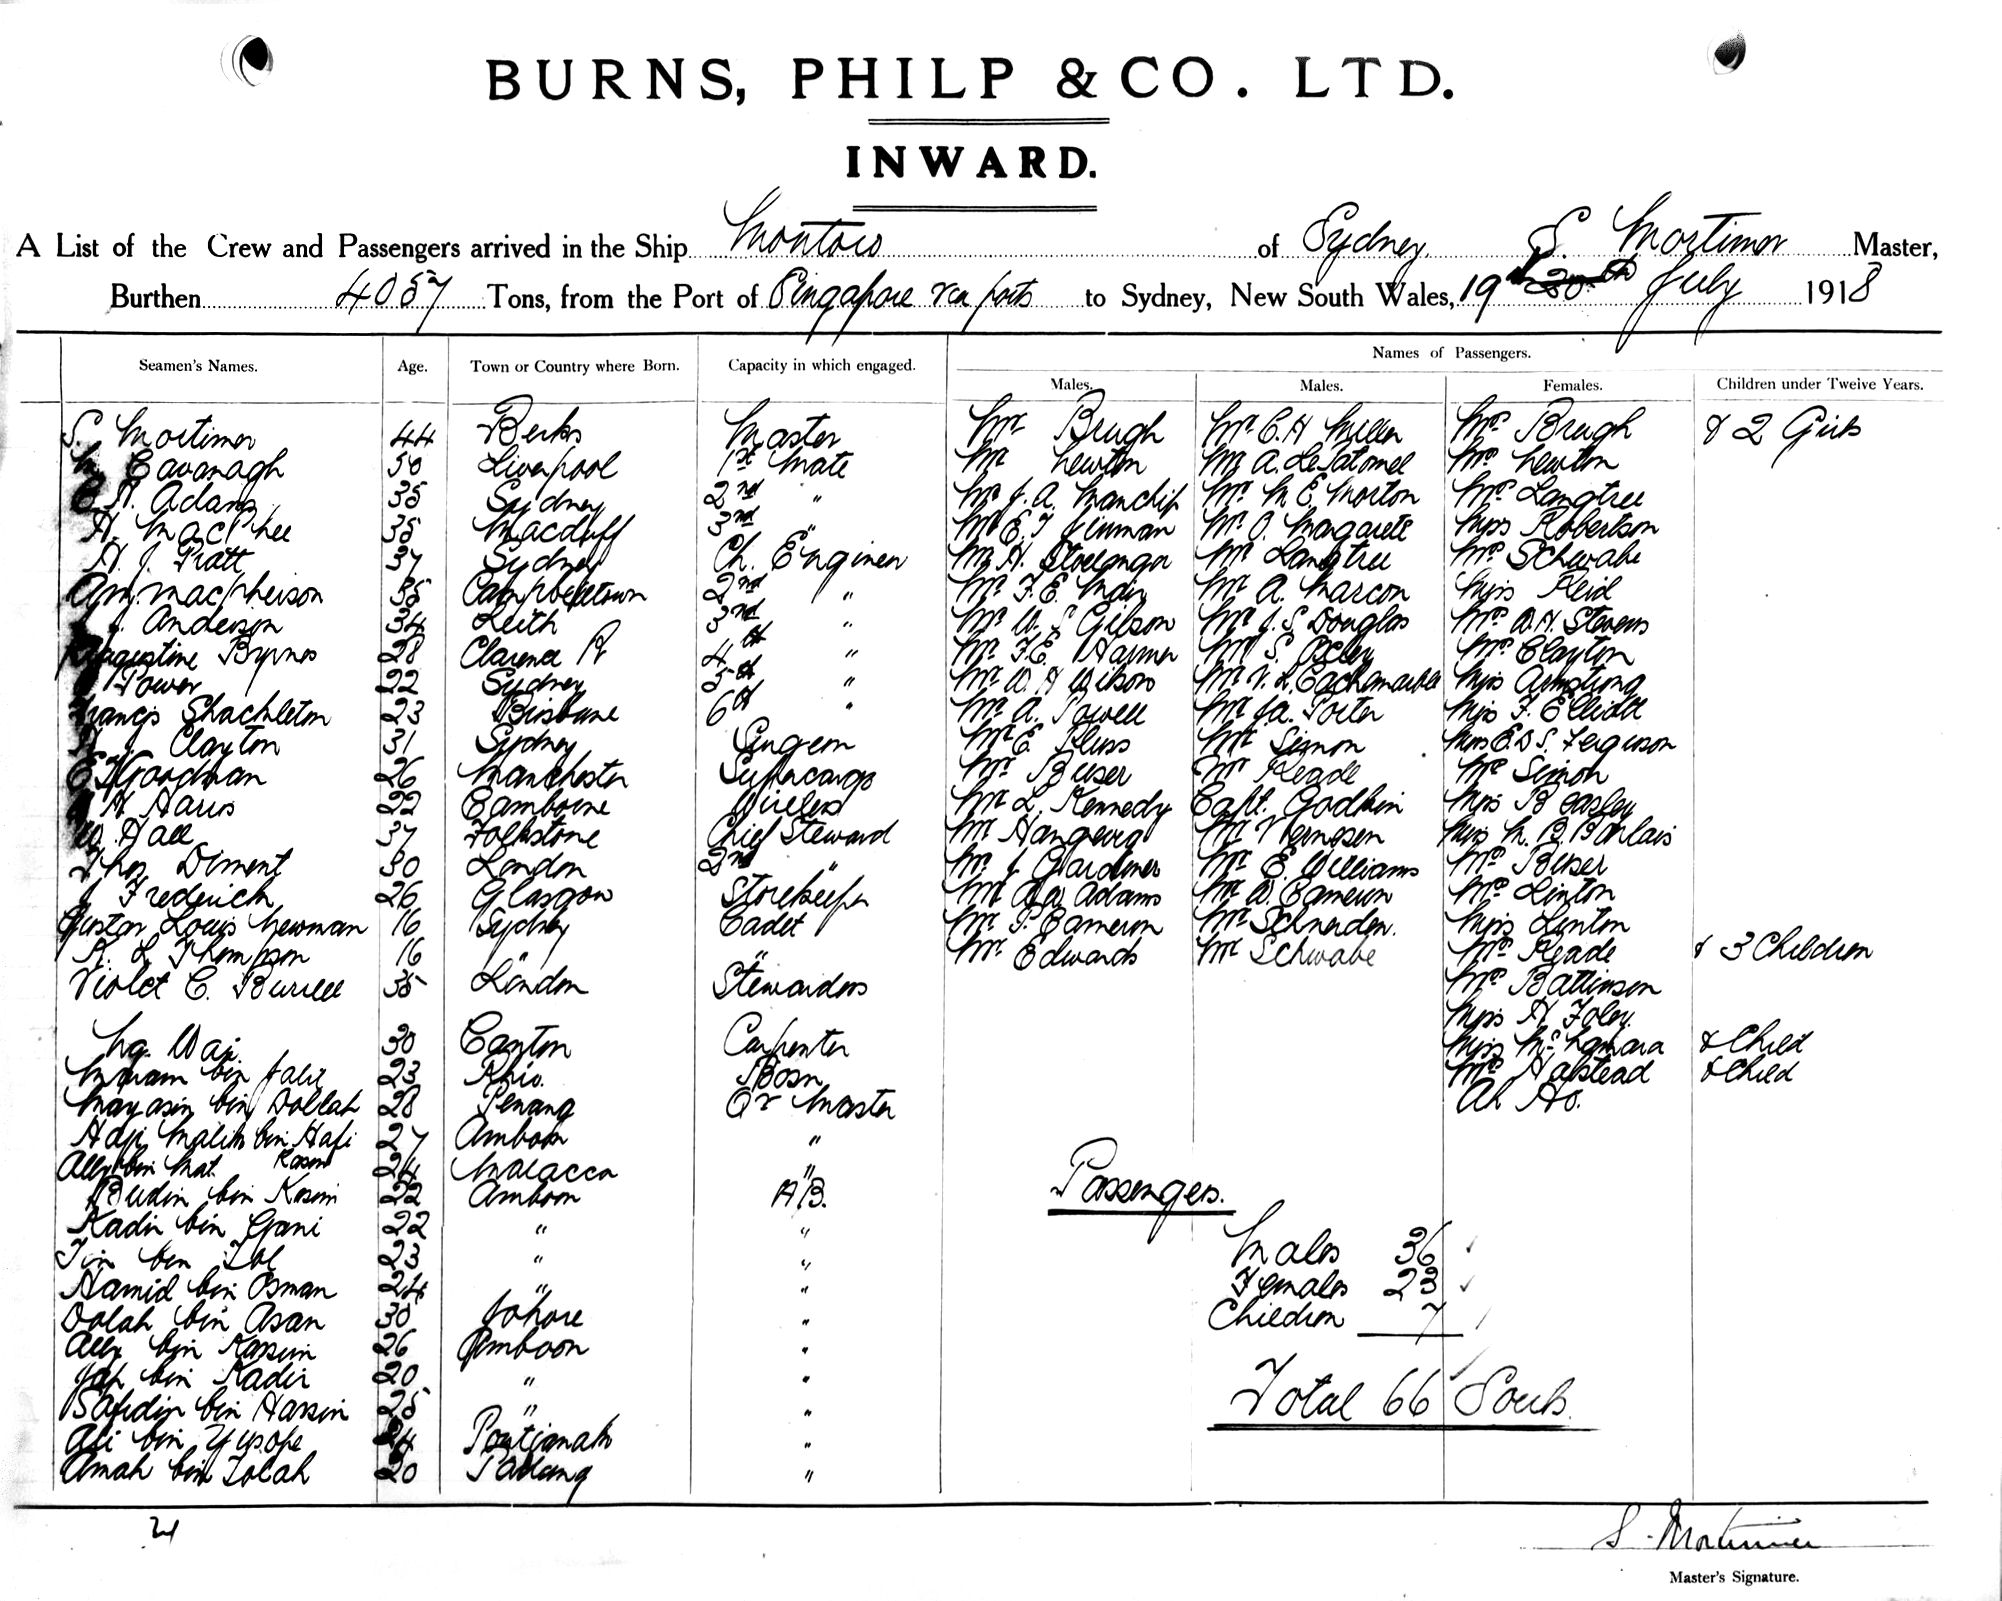 BURNS, PHILP & CO. LTD.
INWARD.
A List of the Crew and Passengers arrived in the Ship Montoro of Sydney S. Mortimer Master,
Burthen 4057 Tons, from the Port of Singapore via ports to Sydney, New South Wales, 19 July 1918
Seamen's Names. Age. Town or Country where Born. Capacity in which engaged. Names of Passengers.
Males. Males. Females. Children under Twelve Years.
S. Mortimer 44 Berks Master Mr Brugh Mr. C. H Miller Mrs Brugh & 2 Girls
Cavanagh 50 Liverpool 1st Mate Mr Newton Mr A. Mrs Newton
A. Adams 35 Sydney 2nd " Mr J. A. Manchip Mr. M E. Morton Mrs Langtree
A. MacPhee 35 Macduff 3rd " Mr E. J. Mr. O. Magarete Miss Robertson
A. J. Pratt 37 Sydney Ch. Engineer Mr H. Mr Langtree Mrs Schwabe
A. M. Macpherson 35 Campbeltown 2nd " Mr. F. E. Mr A. Marcon Miss Reid
J. Anderson 34 Leith 3rd " Mr W. S Gibson Mr. J. S. Douglas Mrs W. H. Stevens
Augustine Byrnes 28 Clarence R 4th " Mr. F. E. Harmer Mr S. Mrs Clayton
Power 22 Sydney 5th " Mr W H Wilson Mr V. L. Miss Armstrong
Francis Shackleton 23 Brisbane 6th " Mr. A. Powell Mr Ja. Porter Miss F. Elliott
Clayton 31 Sydney Surgeon Mr E. Pluss Mr Simon Miss E. D S. Ferguson
E J Goodman 26 Manchester Supercargo Mr. Buser Mr Reade Mrs Simon
H Harris 22 Camborne Wireless Mr L. Kennedy Capt. Godkin Miss Beasley
W. Hall 37 Folkstone Chief Steward Mr Mr Miss M. B.
Thos. Diment 30 London 2nd " Mr. J. Gardiner Mr. E. Williams Mrs Buser
J Frederick 26 Glasgow Storekeeper Mr W Adams Mr. W. Cameron Mrs Linton
Gustav Louis Newman 16 Sydney Cadet Mr. P. Cameron Mr Schneiden. Miss Linton
R. L Thompson 16 " " Mr. Edwards Mr Schwabe Mrs Reade & 3 Children
Violet C. Burrell 35 London Stewardess Mrs Battinson
Miss A Foley
Ng. Wai. 30 Canton Carpenter Miss McNamara & Child
bin Jalil 23 Rhio. Bosn Mrs Halstead & Child
Mayasin bin Dollah 28 Penang Qr Master Ah Ho.
Haji Malik bin Hafi 27 Amboin "
Ally bin Mat. Kassim 24 Malacca "
Budin bin Kosim 22 Amboin A.B.
Passengers.
Kadir bin Gani 22 " "
Males 36
Tin bin Tol 23 " "
Hamid bin Osman 24 " "
Females 23
Dolah bin Asan 30 Johore "
Children 7
Ally bin Kassim 26 Amboon "
Jap bin Kadir 20 " "
Total 66 Souls.
Bafidin bin Hassin 25 " "
Ali bin Yusope 24 Pontianak "
Amah bin Tolah 20 Padang "
S. Mortimer
Master's Signature.